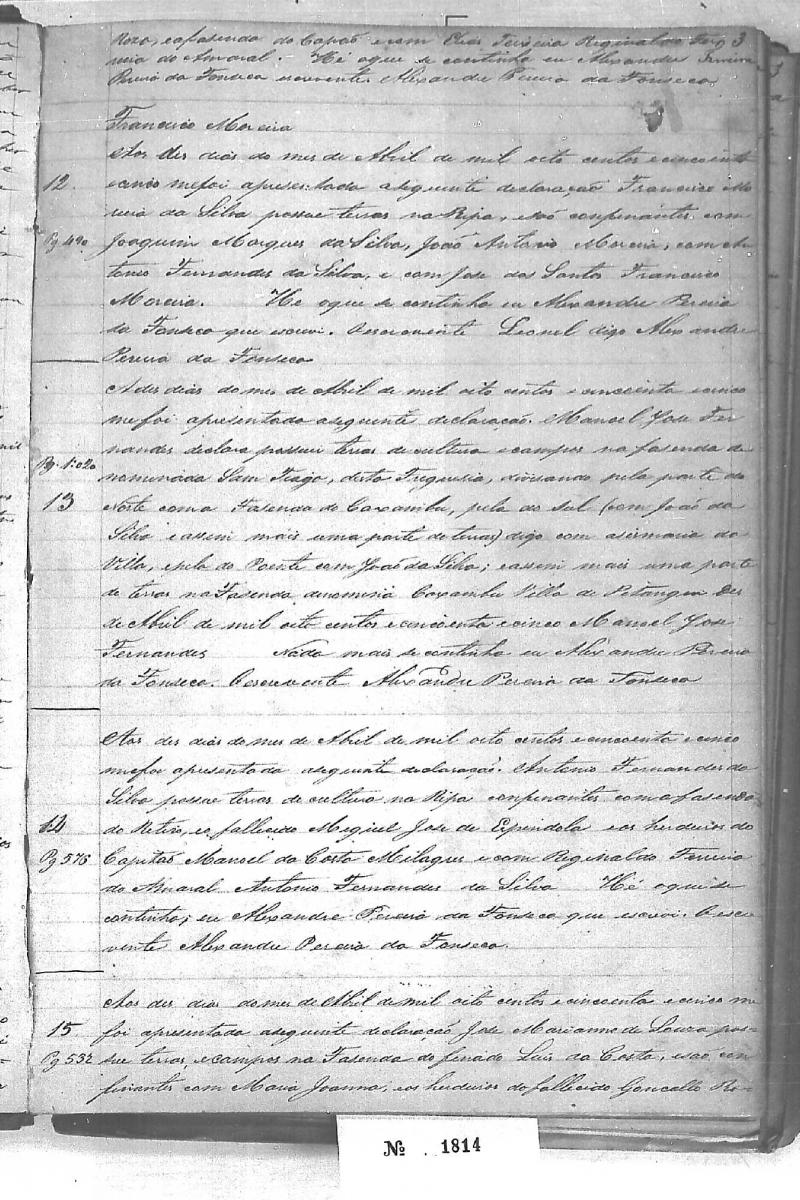 Rozo, eafasenda do Capão ecom Elias Teixeira Reginaldo Fer 3
reira do Amaral. Hé oque se continha eu Alexandre
Pereira da Fonseca escrevente. Alexandre Pereira da Fonseca
Francisco Moreira
Aos des dias do mes de Abril de mil oito centos ecincoenta
12 ecinco mefoi apresentada aseguinte declaração Francisco Mo
reira da Silva possue terras na Ripa, esaõ confinantes com
Pg 490 Joaquim Marques da Silva, João Antonio Moreira, com An
tonio Fernandes da Silva, e com Jose dos Santos Francisco
Moreira. Hé oque se continha eu Alexandre Pereira
da Fonseca que escrevi. Oescrevente Leonel digo Alexandre
Pereira da Fonseca
A des dias do mes de Abril de mil oito centos e cincoenta ecinco
mefoi apresentada aseguinte declaração. Manoel Jose Fer
nandes declara possuir terras de cultura ecampos na fasenda de
Pg. 1:020 nominada Sam Tiago, desta Freguesia, divisando pela parte do
13 Norte com a Fasenda do Caxambu, pela do Sul (com João da
Silva eassim mais uma parte de terras) digo com asismaria da
Villa, epela do Poente com João da Silva; eassim mais uma parte
de terras na Fasenda denominia Caxambu Villa de Pitangui Des
de Abril de mil oito centos ecincoenta ecinco Manoel Jose
Fernandes Nada mais se continha eu Alexandre Pereira
da Fonseca. Oescrevente Alexandre Pereira da Fonseca
Aos des dias do mes de Abril de mil oito centos e cincoenta e cinco
mefoi apresentada aseguinte declaração. Antonio Fernandes da
Silva possue terras de cultura na Ripa confinantes com a fasenda
14 do Retiro, eo fallecido Meguel Jose de Espindola eos herdeiros do
Pg 576 Capitão Manoel da Costa Milagres e com Reginaldo Ferreira
do Amaral Antonio Fernandes da Silva Hé oque se
continha; eu Alexandre Pereira da Fonseca que escrevi. Oescre
vente Alexandre Pereira da Fonseca.
Aos des dias do mes de Abril de mil oito centos e cincoenta e cinco me
15 foi apresentada aseguinte declaração Jose Marianno de Souza pos
Pg 532 sue terras, ecampos na Fasenda do finado Luis da Costa, esaõ con
finantes com Maria Joanna, eos herdeiros do fallecido Goncallo Ro
Nº 1814